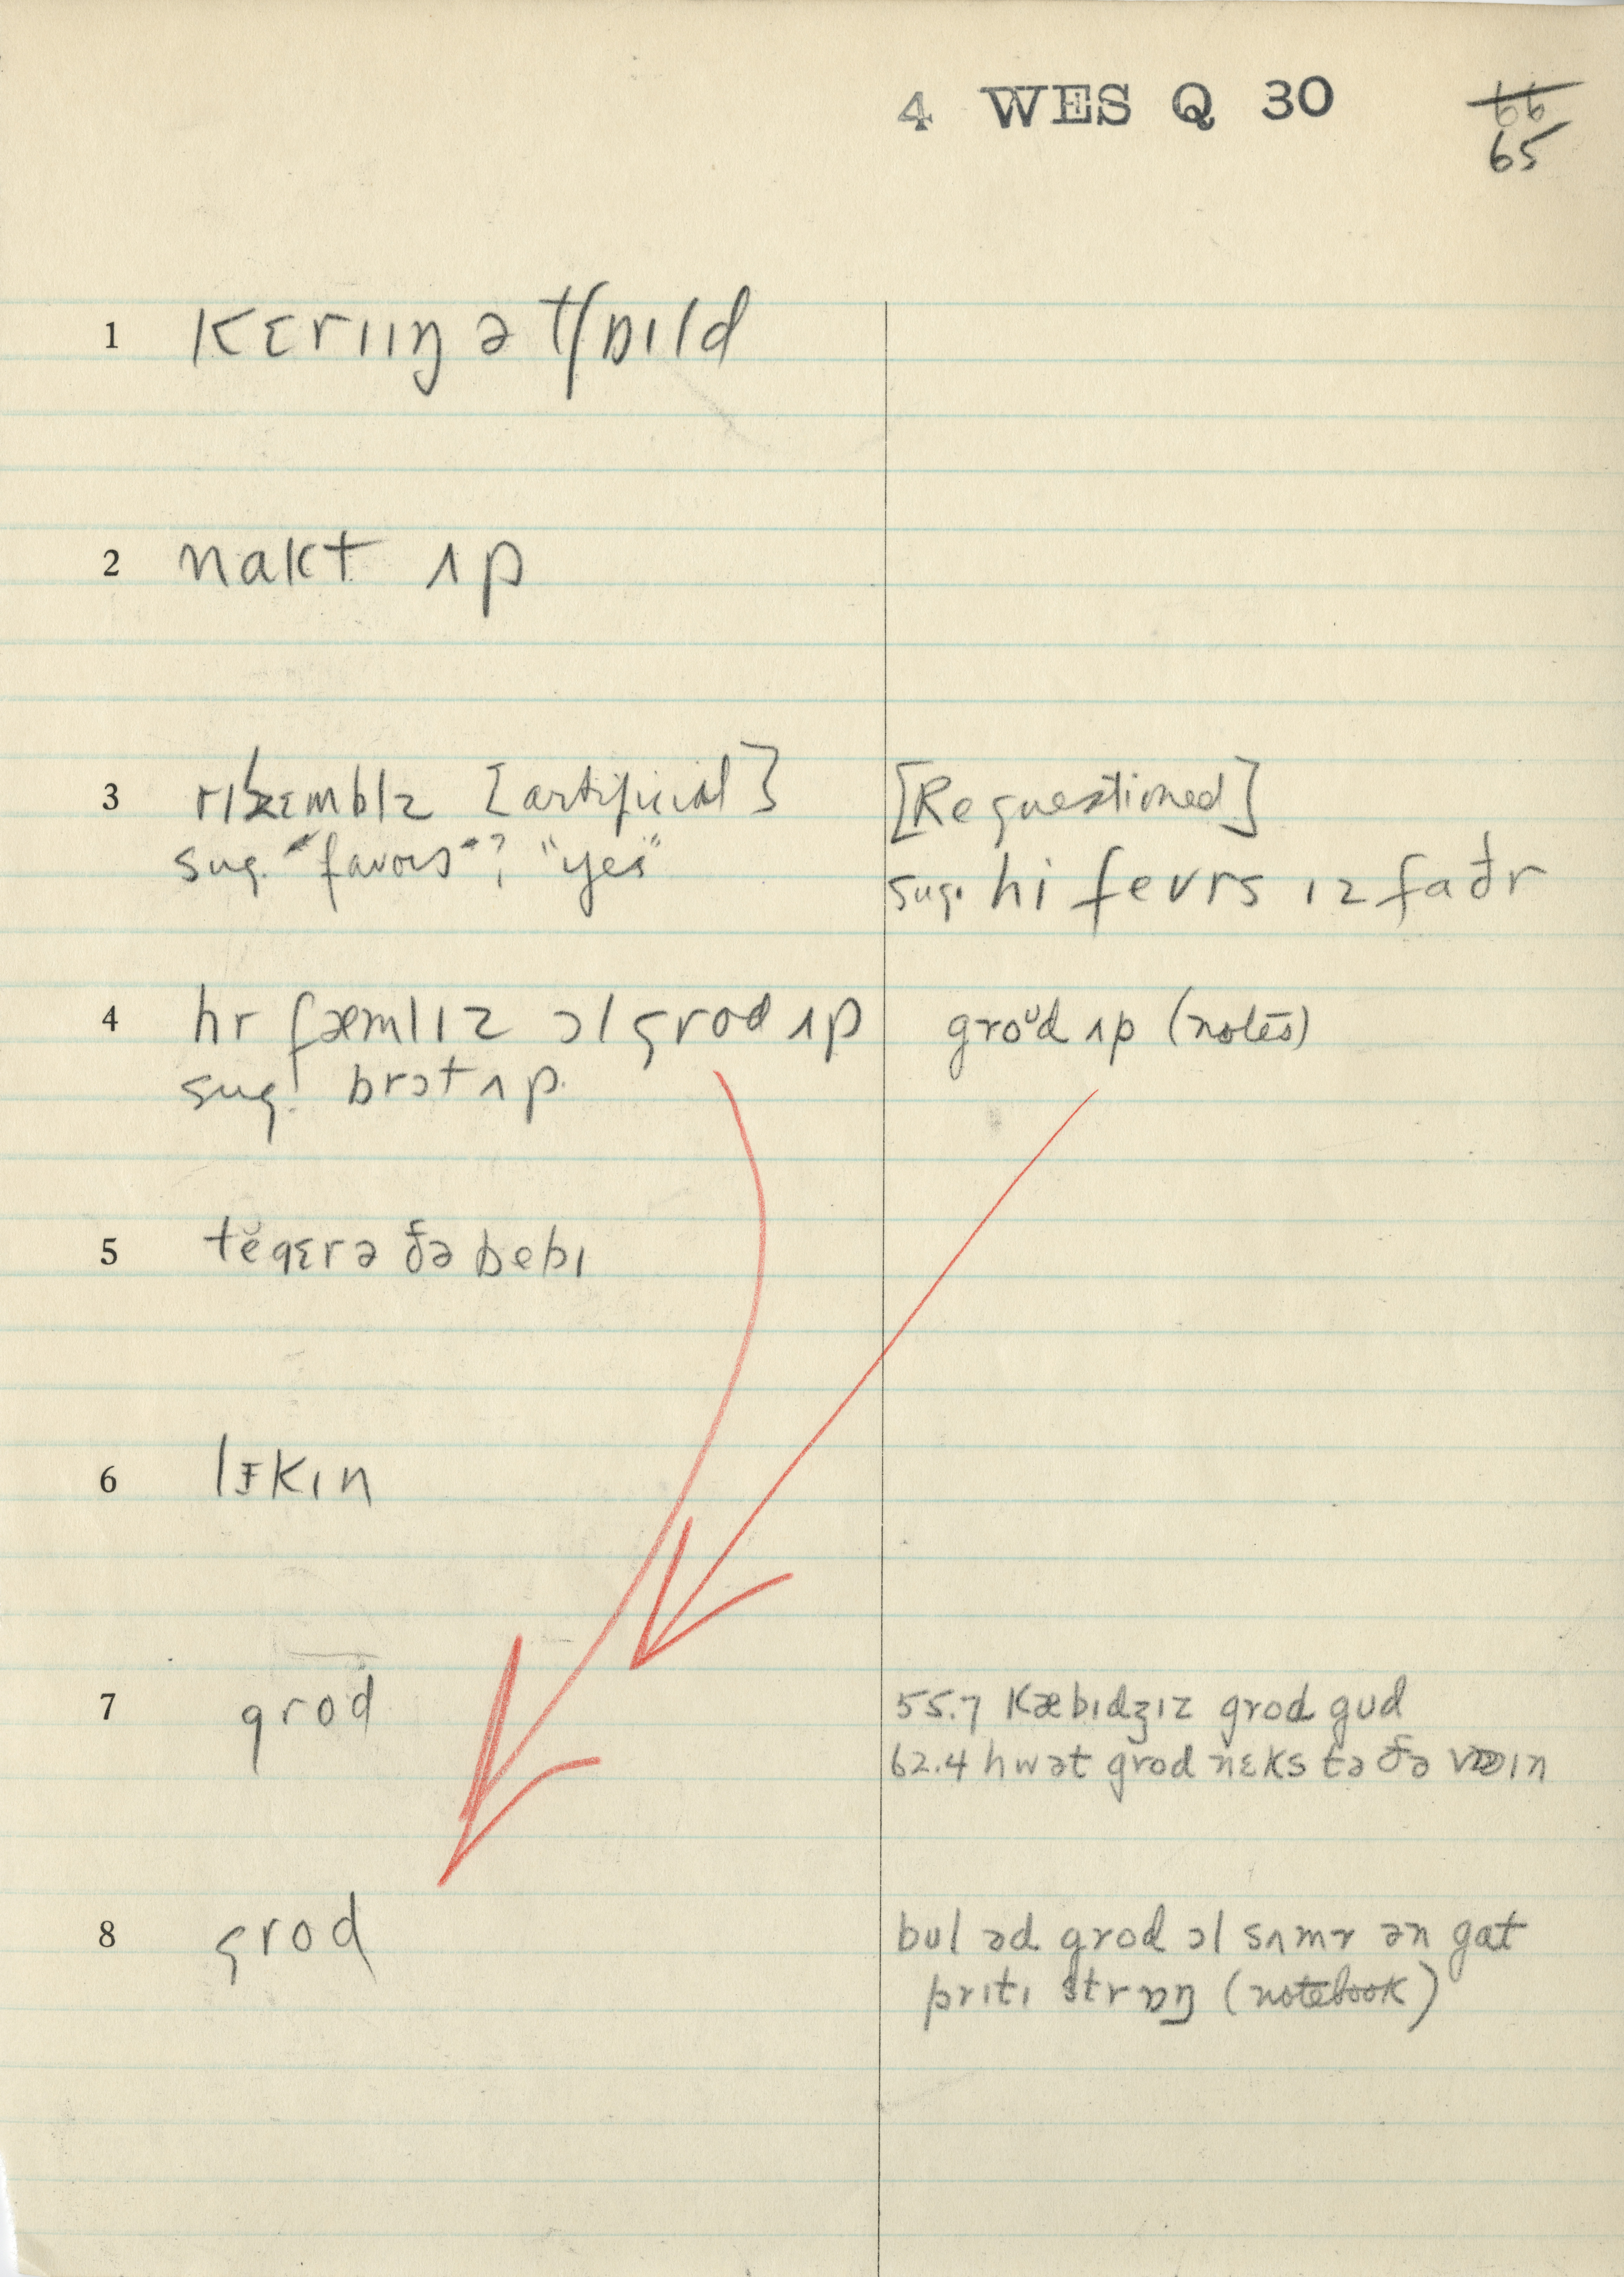 4 WES Q 30
66
65
1 kɛrɪɪŋ ə tʃɒɪld
2 nakt ʌp
3 rɪzɛmblz [artificial]
sug. "favors"? "yes"
[Requestioned]
sug. hi fevrs ɪz faðr
4 hr fæmlɪz ɔl grod ʌp
sug. brɔt ʌp.
groᶷd ʌp (notes)
5 tĕqɛrə ðə bebɪ
6 lɪkɪn
7 grod
55.7 kæbɪdʒɪz grod gud
62.4 hwət grod nɛks tə ðə
8 grod
bul əd grod ɔl sʌmr ən gat
prɪtɪ strɒŋ (notebook)